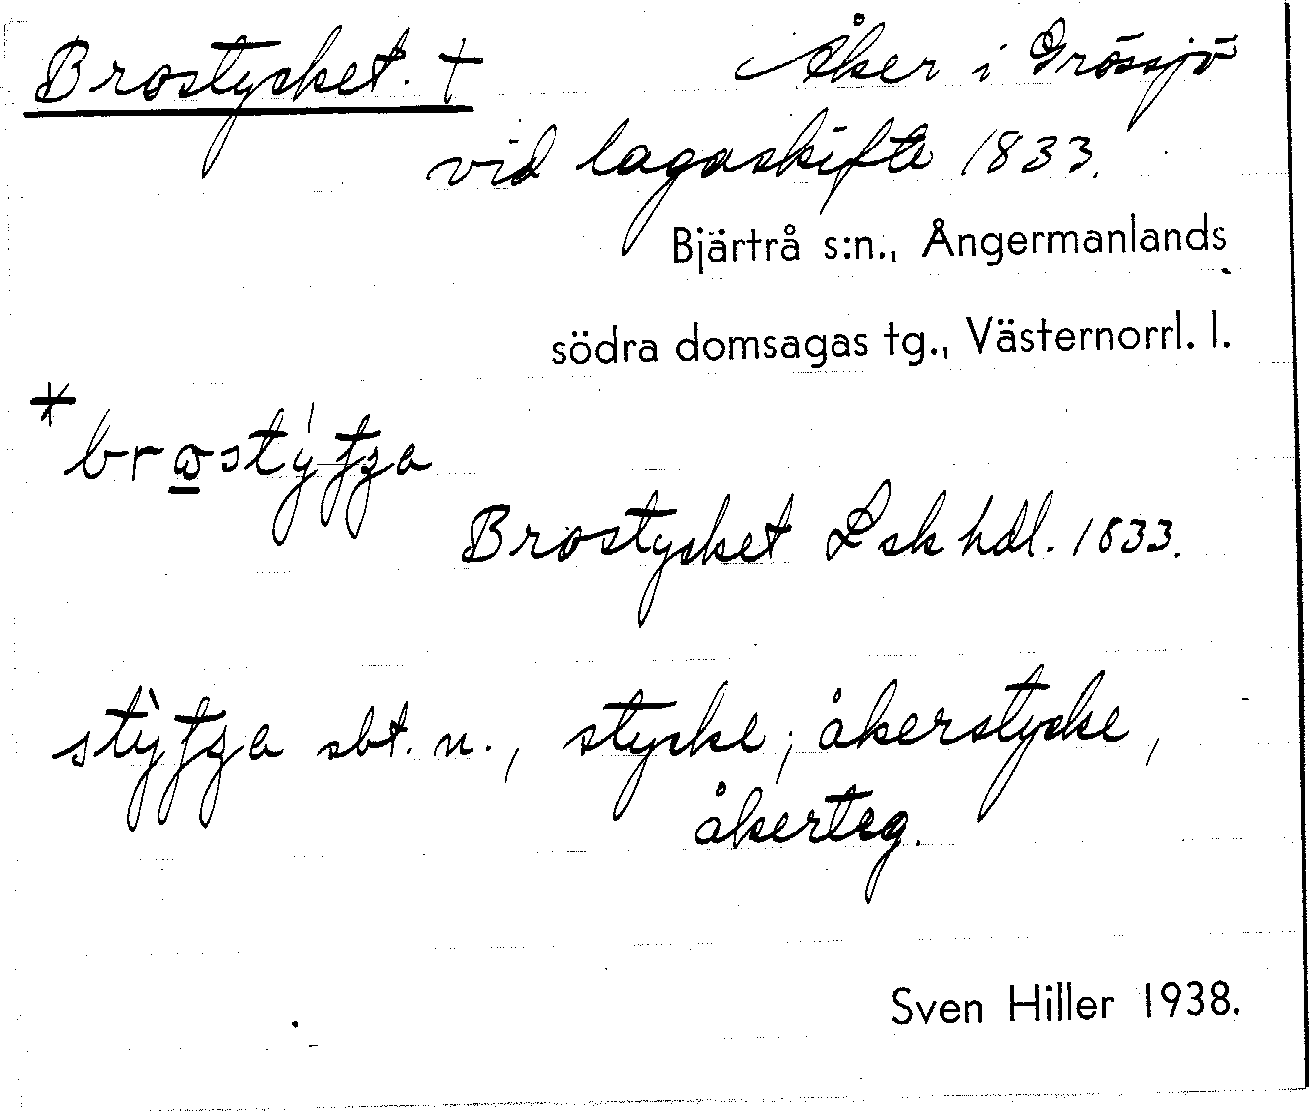 Brostycket. † Åker i Grössjö
vid lagaskifte 1833.
Bjärtrå s:n., Ångermanlands
södra domsagas tg., Västernorrl. l.
Brostycket Lskhdl. 1833.
sbt. n., stycke; åkerstycke,
åkerteg.
Sven Hiller 1938.